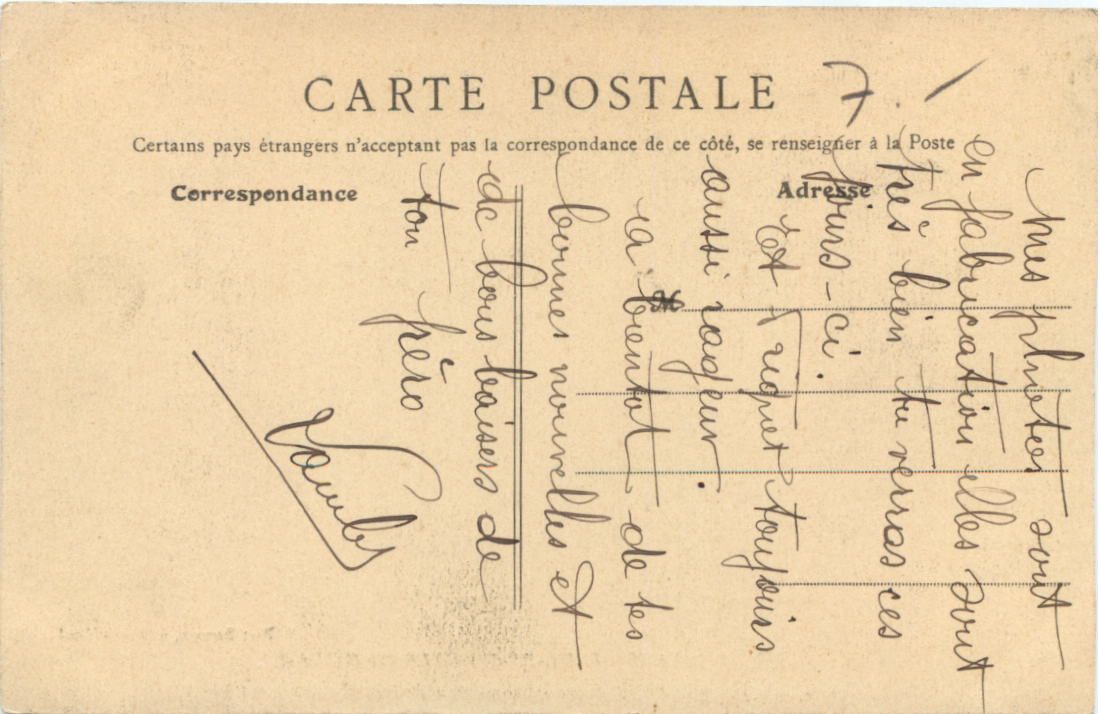 CARTE POSTALE
7.
Certains pays étrangers n'acceptant pas la correspondance de ce côté, se renseigner à la Poste
Correspondance
Adresse
M
mes photos sont
en fabrication elles sont
très bien tu verras ces
jours-ci.
Et Triquet toujours
aussi rageur.
a bientot de tes
bonnes nouvelles et
de bons baisers de
ton frère